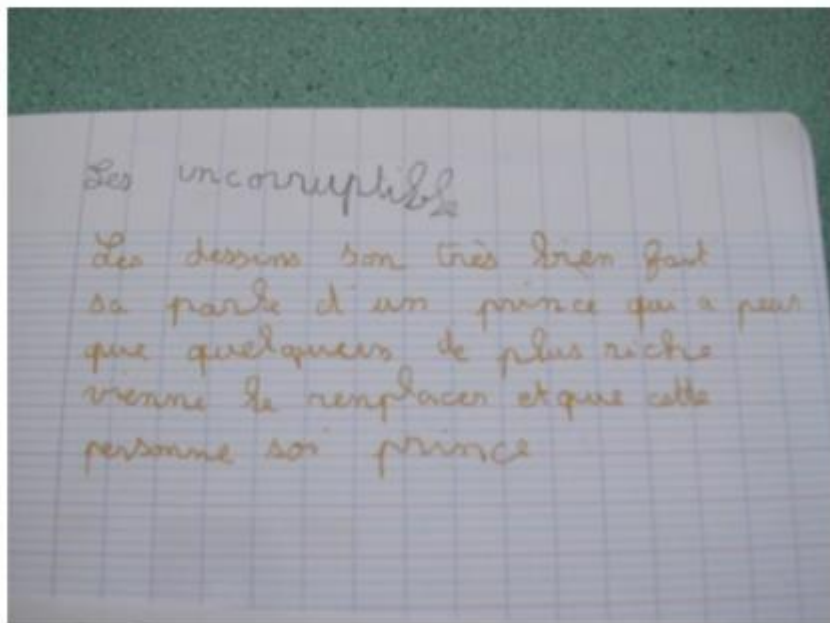 Les incorruptible
Les dessins son très bien fait
sa parle d'un prince qui a peur
que quelqu'un de plus riche
vienne le renplacer et que cette
personne soi prince